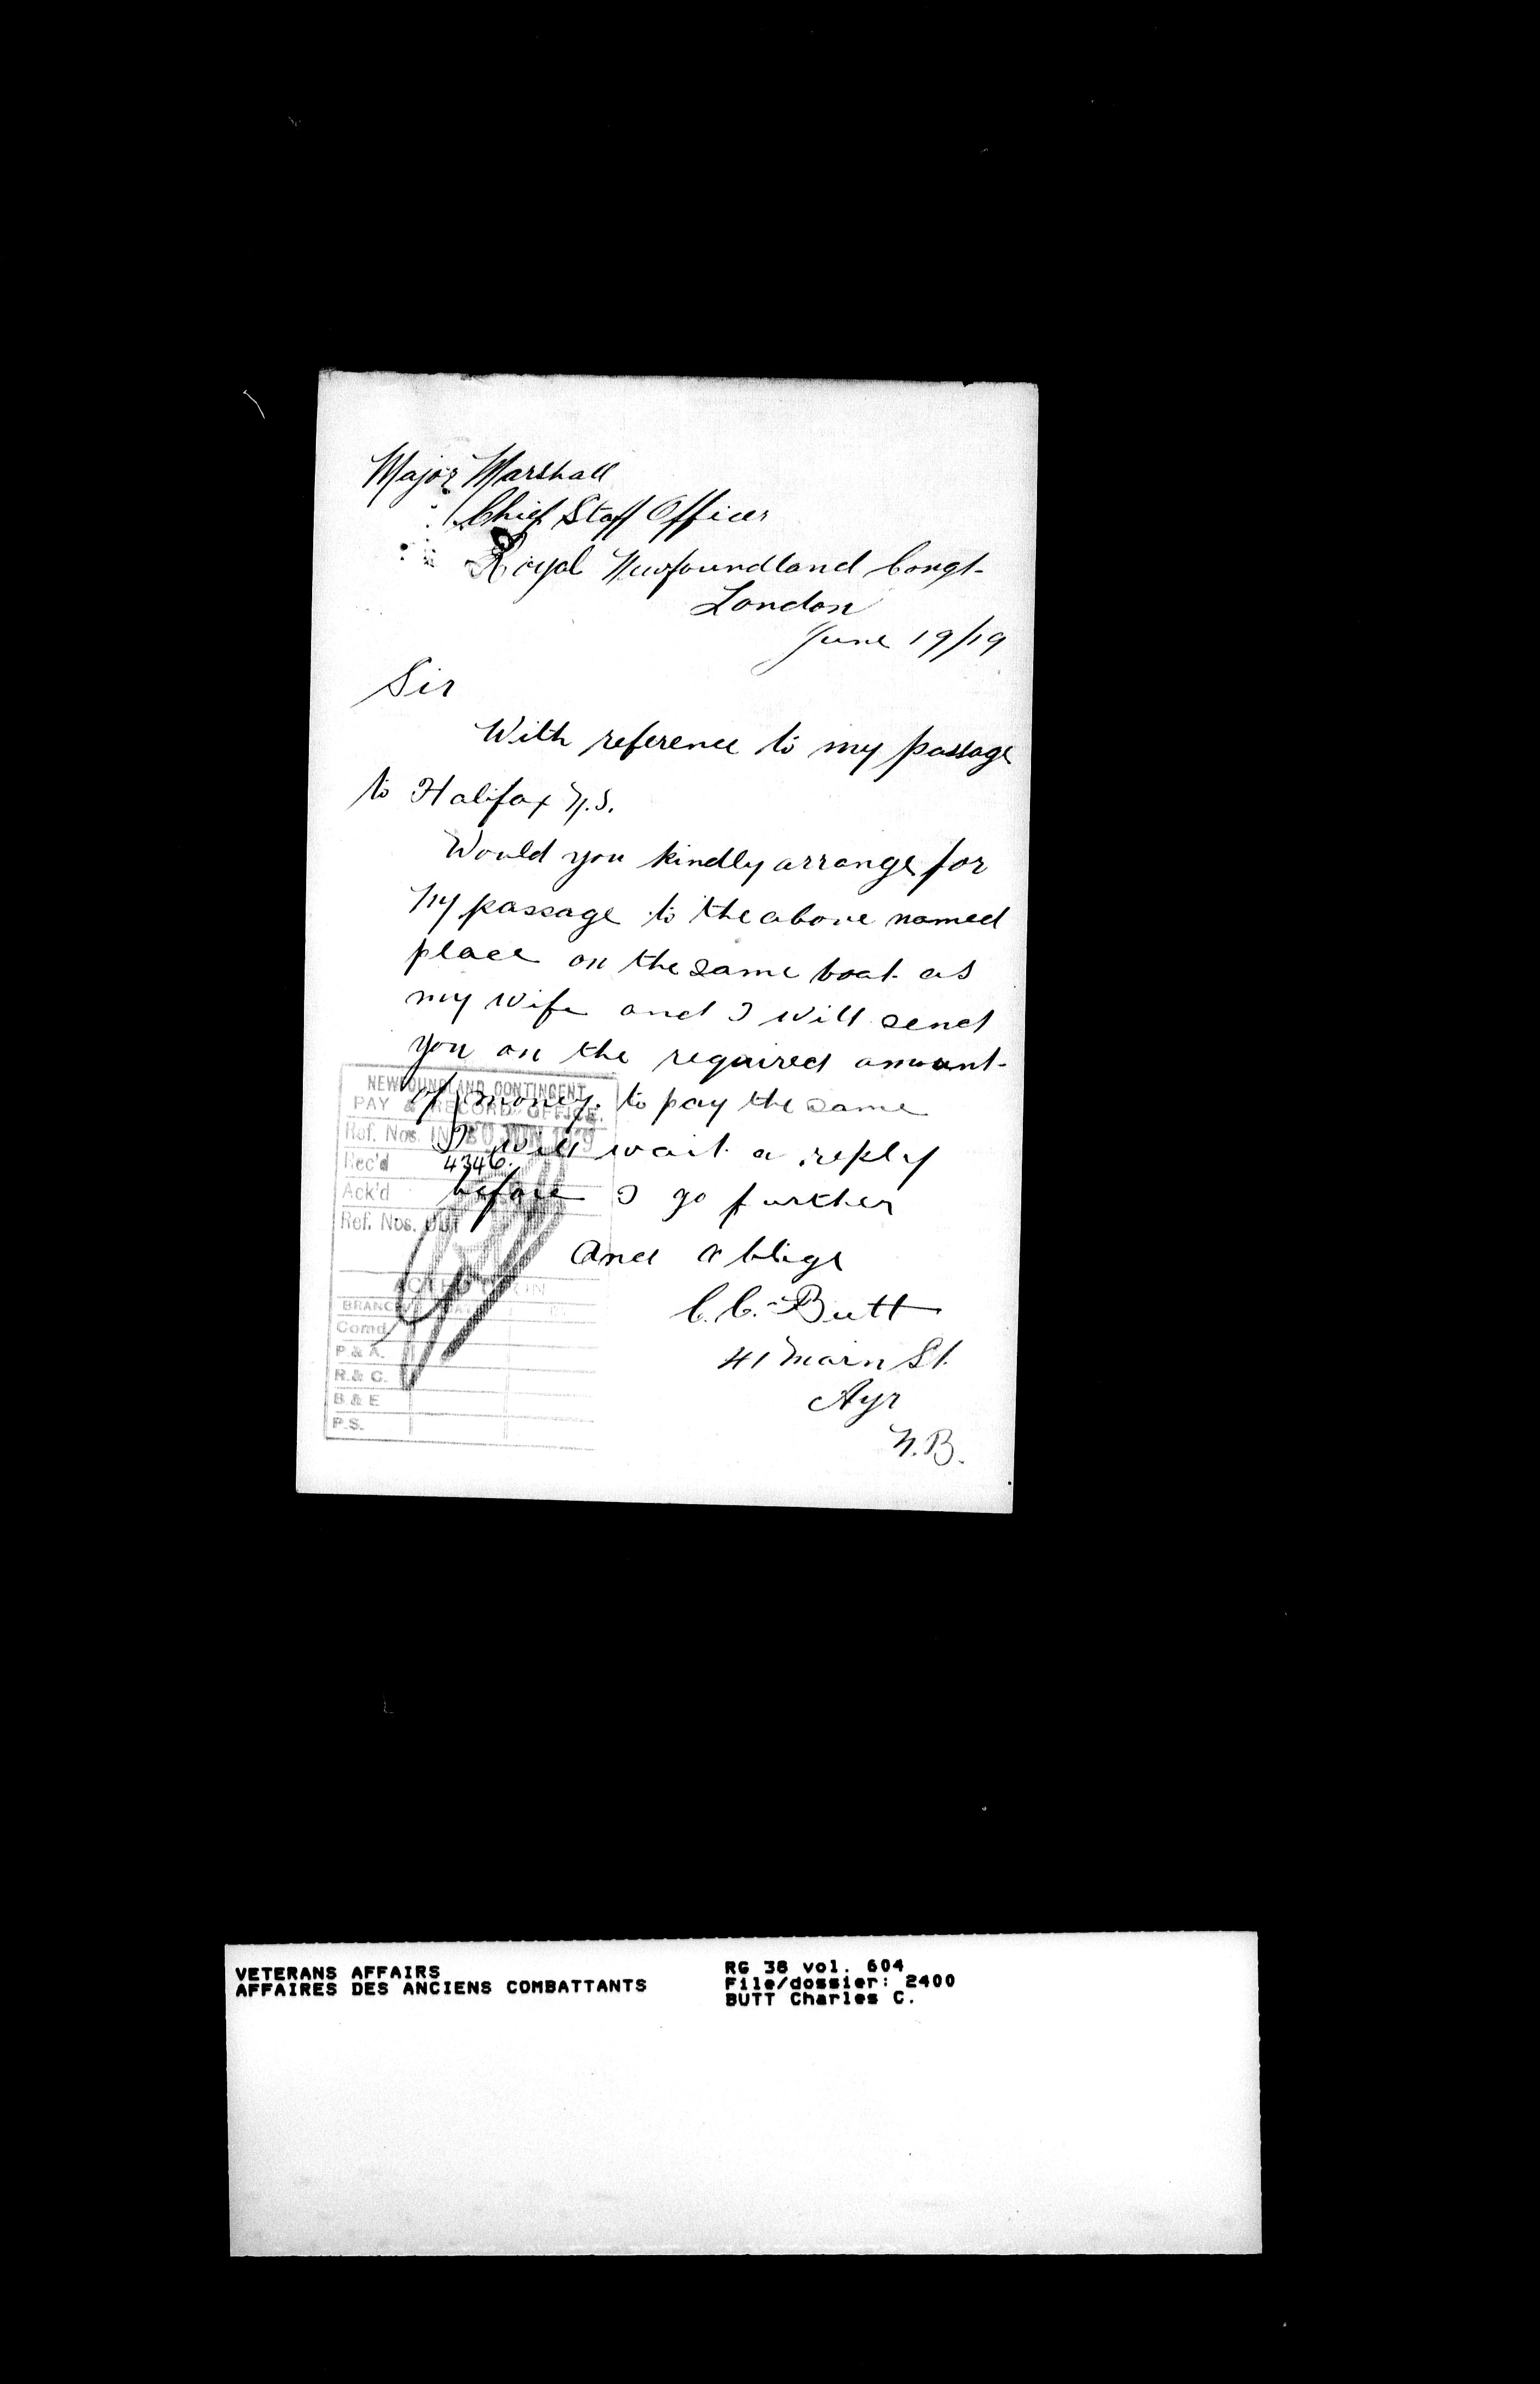 Major Marshall
Chief Staff Officer
Royal Newfoundland Congt.
London
June 19/19
Sir
With reference to my passage
to Halifax N.S.
Would you kindly arrange for
My passage to the above named
place on the same boat as
my wife and I will send
you on the required amount
of money. to pay the same
I will wait a reply
before I go further
And oblige
C. C. Butt
41 Main St.
Ayr
N.B.
NEWFOUNDLAND CONTINGENT
PAY & RECORD OFFICE.
Ref. Nos. IN 20 JUN 1919
Rec'd 4346.
Ack'd
Ref. Nos. OUT
ACTION TAKEN
BRANCH
Comd
P. & A.
R. & C.
B & E
P.S.
VETERANS AFFAIRS
AFFAIRES DES ANCIENS COMBATTANTS
RG 38 vol. 604
File/dossier: 2400
BUTT Charles C.